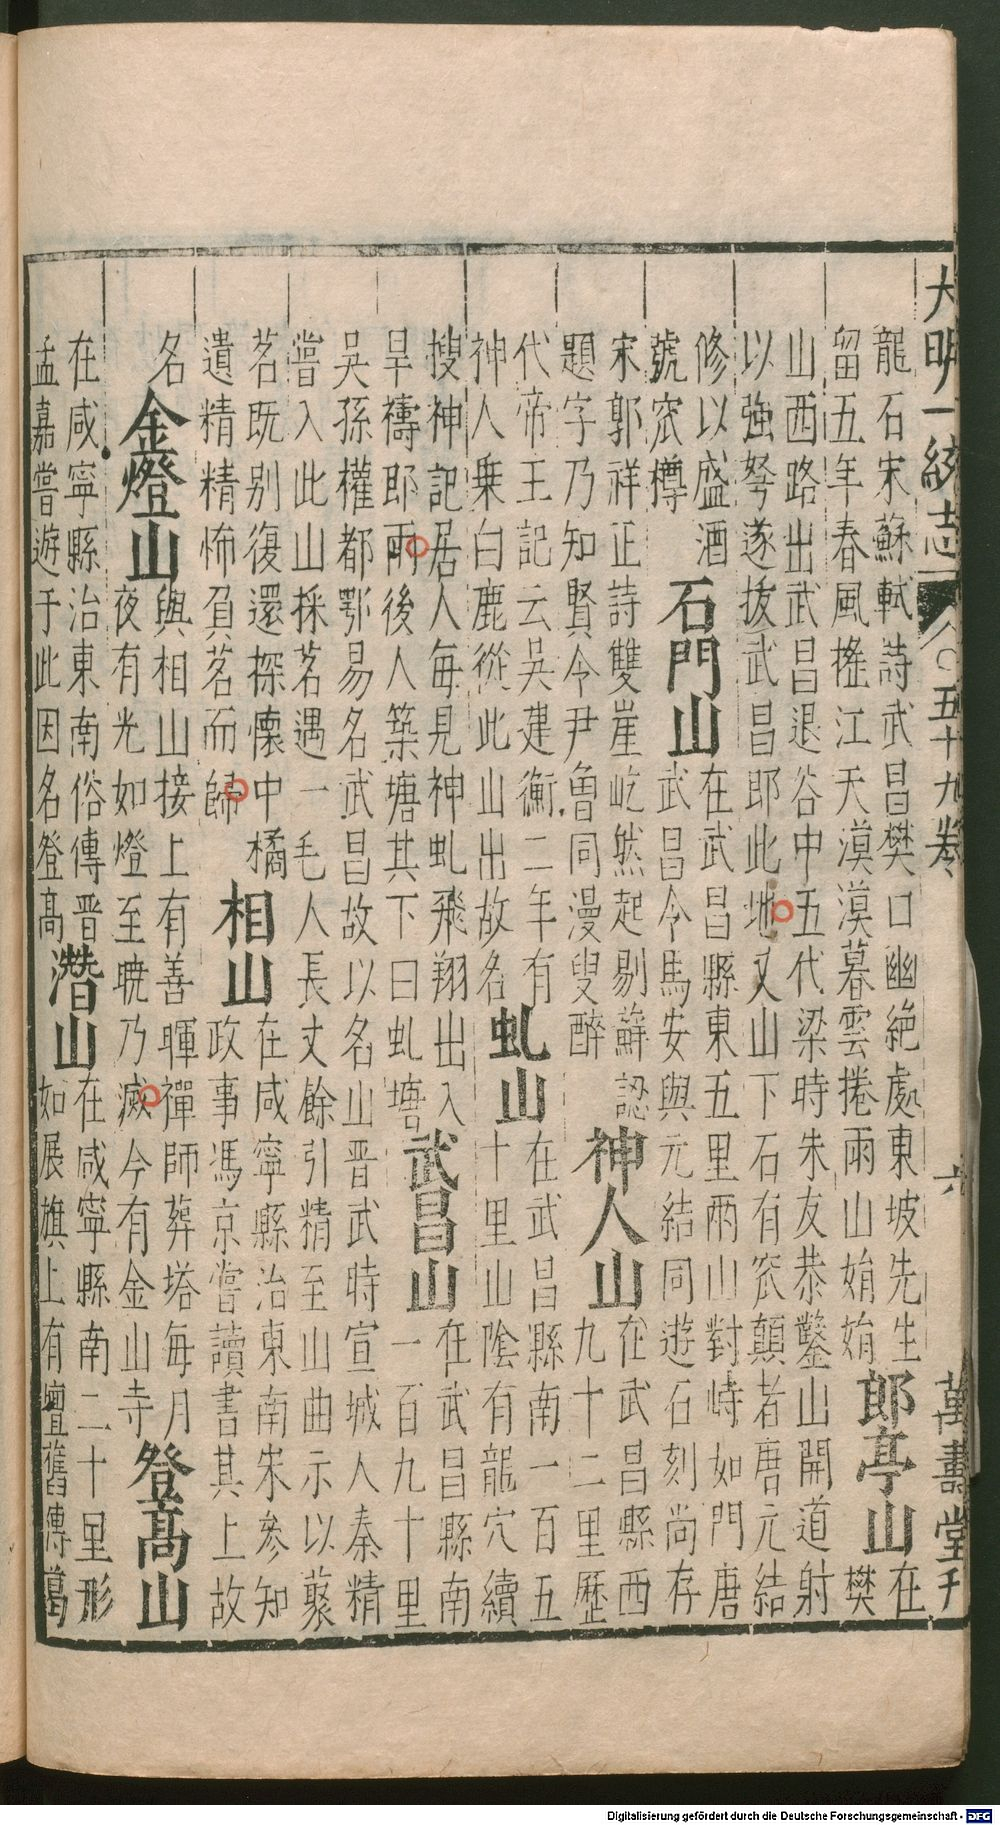 大明一統志 八〇五十九卷 六 萬壽堂刋
龍石宋蘇軾詩武昌樊口幽絕處東坡先生
留五年春風搖江天漠漠暮雲捲雨山娟娟
郎亭山
在
樊
山西路出武昌退谷中五代梁時朱友恭鑿山開道射
以強弩遂拔武昌即此地又山下石有窊顛者唐元結
修以盛酒
號窊樽
石門山
在武昌縣東五里兩山對峙如門唐
武昌令馬安與元結同遊石刻尚存
宋郭祥正詩雙崖屹然起剔蘚認
題字乃知賢令尹魯同漫叟醉
神人山
在武昌縣西
九十二里歷
代帝王記云吳建衡二年有
神人乗白鹿從此山出故名
虬山
在武昌縣南一百五
十里山陰有龍穴續
搜神記居人每見神虬飛翔出入
旱禱即雨後人築塘其下曰虬塘
武昌山
在武昌縣南
一百九十里
吳孫權都鄂易名武昌故以名山晋武時宣城人秦精
嘗入此山採茗遇一毛人長丈餘引精至山曲示以藂
茗既别復還探懷中橘
遺精精怖負茗而歸
相山
在咸寧縣治東南宋參知
政事馮京嘗讀書其上故
名
金燈山
與相山接上有善暉禪師葬塔每月
夜有光如燈至曉乃滅今有金山寺
登髙山
在咸寧縣治東南俗傳晋
孟嘉嘗遊于此因名登髙
潛山
在咸寧縣南二十里形
如展旗上有壇舊傳葛
Digitalisierung gefördert durch die Deutsche Forschungsgemeinschaft - DFG